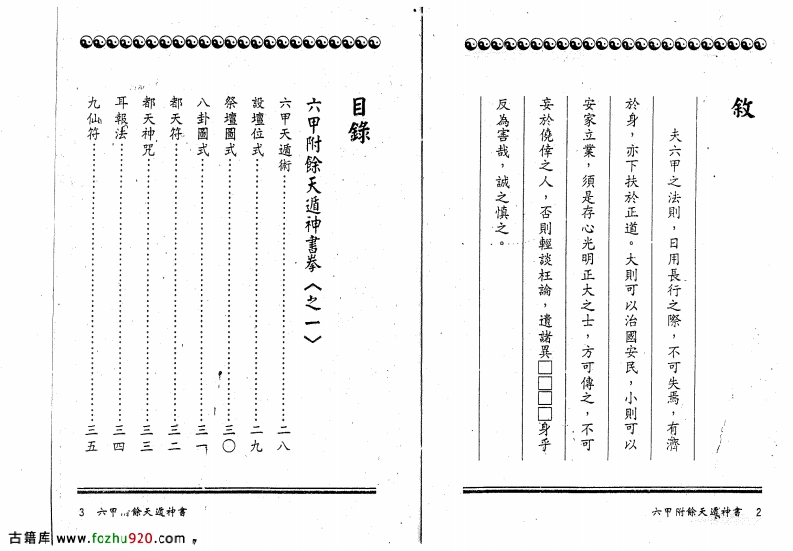 敘
夫六甲之法則，日用長行之際，不可失焉，有濟
於身，亦下扶於正道。大則可以治國安民，小則可以
安家立業，須是存心光明正大之士，方可傳之，不可
妄於僥倖之人，否則輕談枉論，遺諸異□□□□身乎
反為害哉，誠之慎之。
六甲附餘天遁神書 2
目錄
六甲附餘天遁神書拳〈之一〉
六甲天遁術……………………二八
設壇位式……………………二九
祭壇圖式……………………三〇
八卦圖式……………………三一
都天符……………………三二
都天神咒……………………三三
耳報法……………………三四
九仙符……………………三五
3 六甲 餘天遁神書
古籍库 www.fozhu920.com